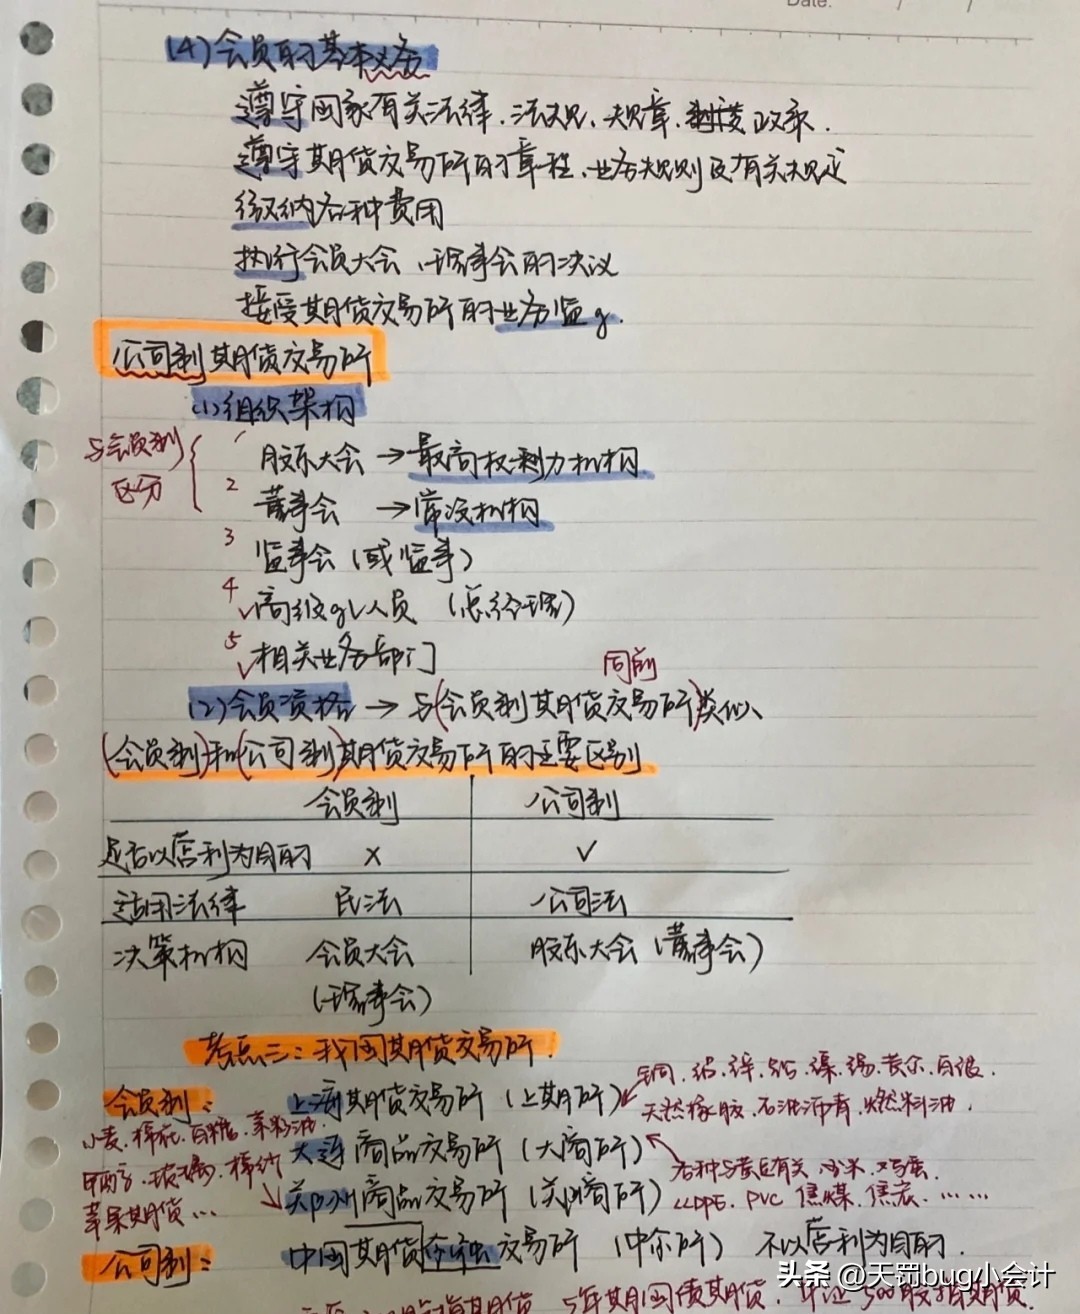 Date: / /
(4)会员的基本义务
遵守国家有关法律、法规、规章、制度政策.
遵守期货交易所的章程、业务规则及有关规定
缴纳各种费用
执行会员大会、理事会的决议
接受期货交易所的业务监g.
公司制期货交易所
(1)组织架构
与会员制区分
1 股东大会 → 最高权利力机构
2 董事会 → 常设机构
3 监事会(或监事)
4 √高级gl人员 (总经理)
5 √相关业务部门
同前
(2)会员资格 → 与(会员制期货交易所)类似、
(会员制)和(公司制)期货交易所的主要区别
会员制 公司制
是否以营利为目的 × √
适用法律 民法 公司法
决策机构 会员大会 股东大会(董事会)
(理事会)
考点二:我国期货交易所.
会员制: 上海期货交易所(上期所) 铜、铝、锌、铅、镍、锡、黄金、白银、
天然橡胶、石油沥青、燃料油.
小麦、棉花、白糖、菜籽油、
大连商品交易所(大商所) 各种与黄豆有关、玉米、鸡蛋
甲醇、玻璃、棉纱
郑州商品交易所(郑商所) LLDPE、PVC 焦煤、焦炭、……
苹果期货…
公司制: 中国期货金融交易所(中金所) 不以营利为目的.
头条 @天罚bug小会计
指期货、5年期国债期货、中证500股指期货.